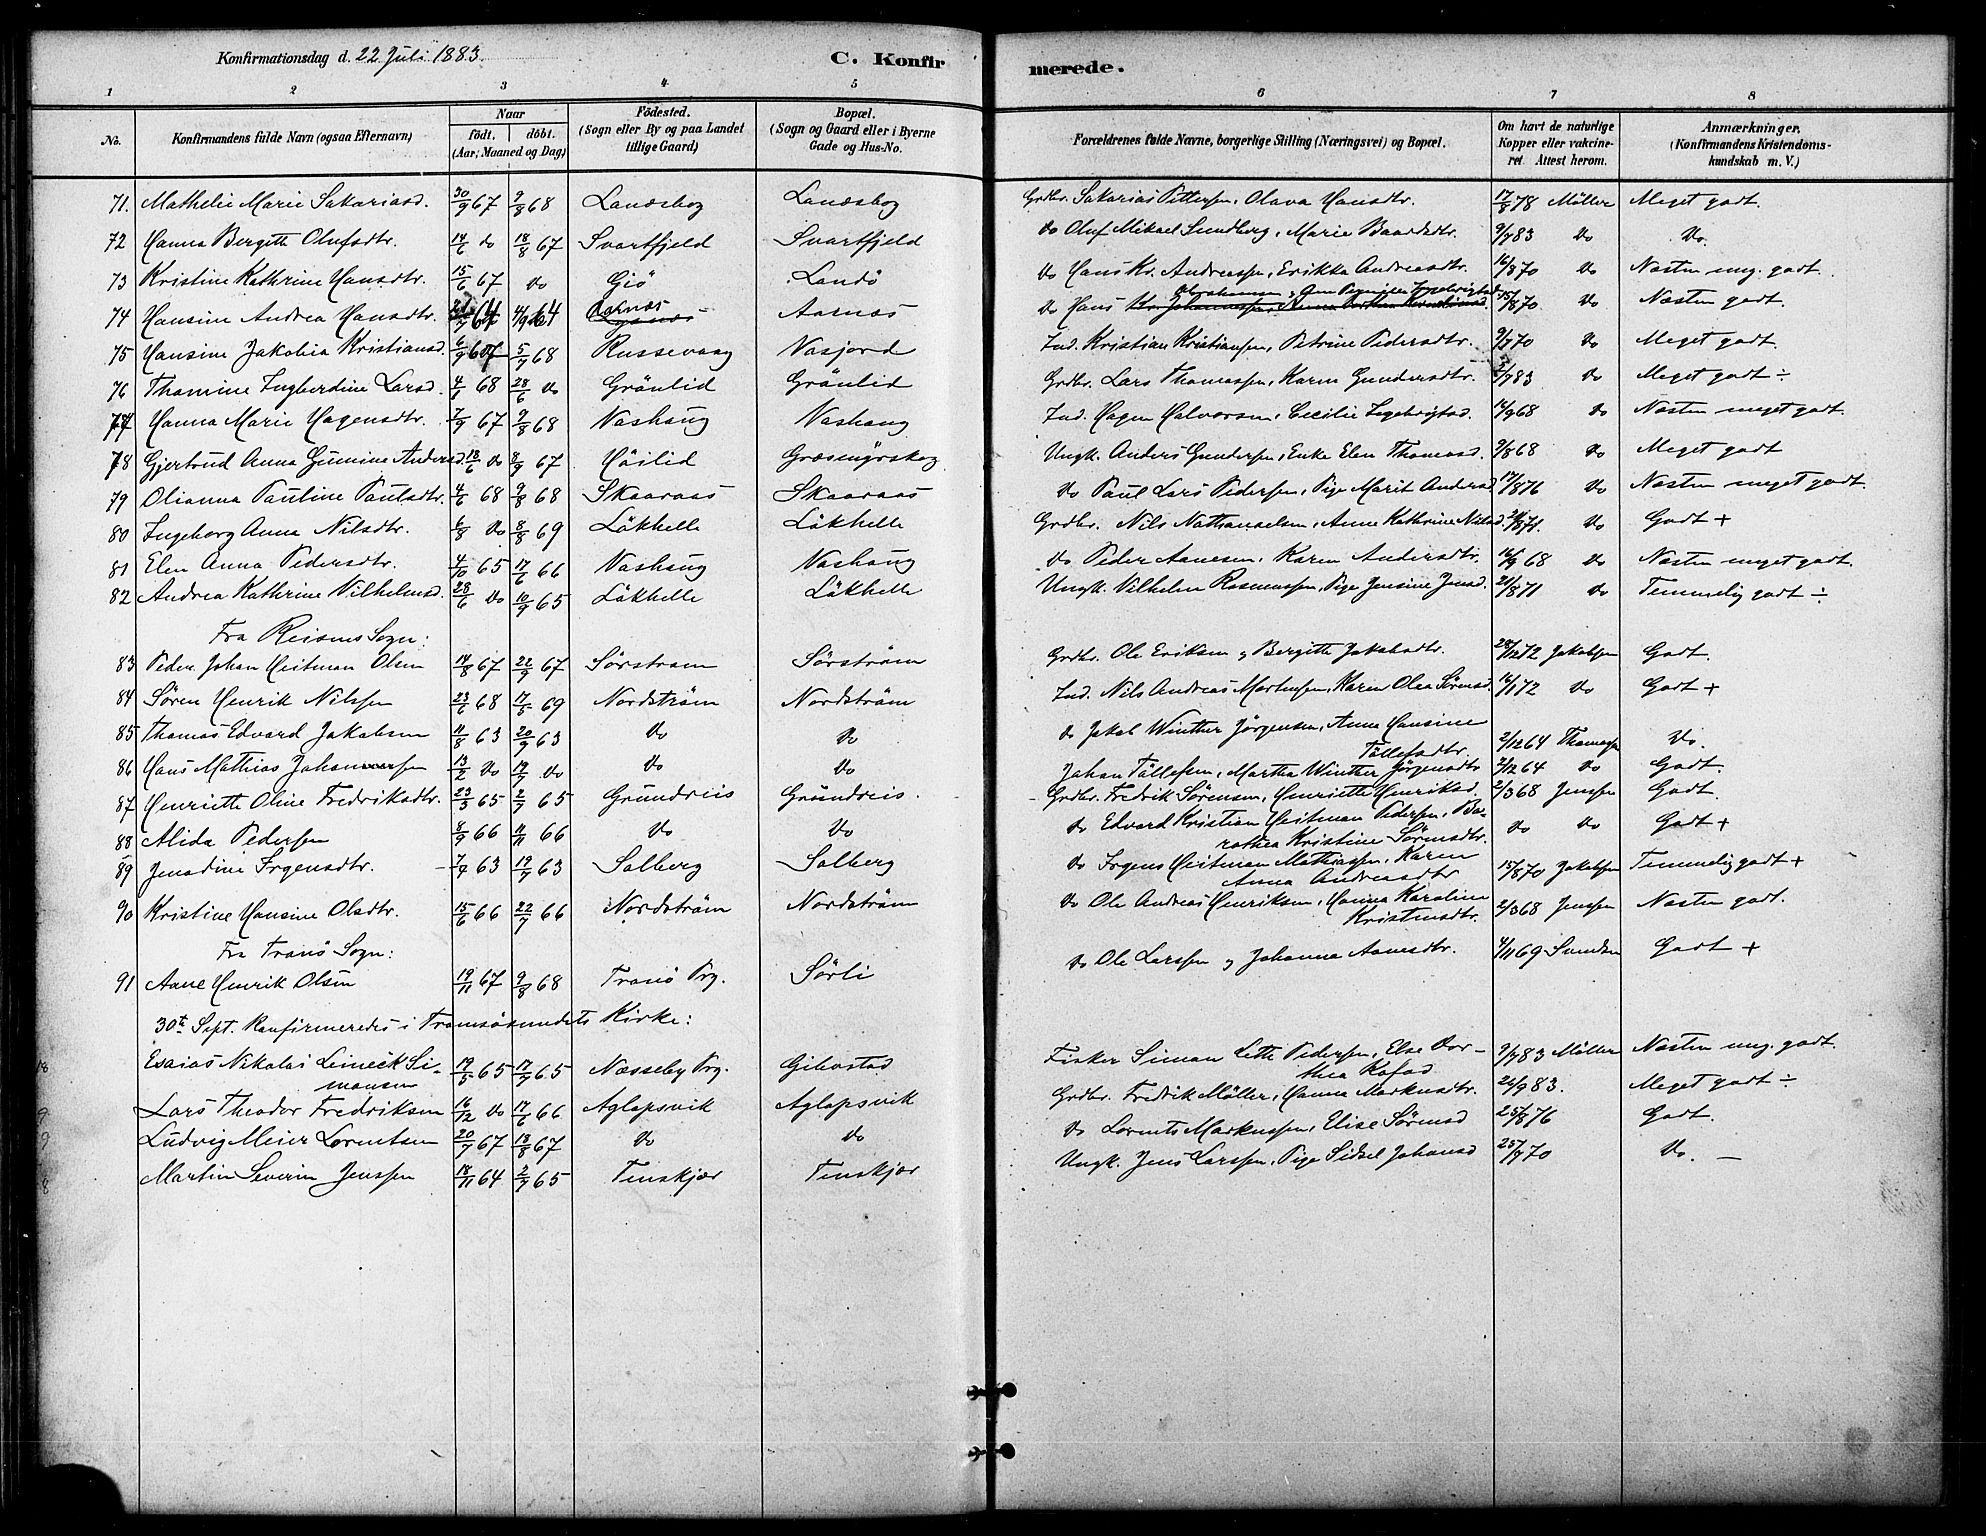 Konfirmationsdag d. 22 Juli 1883. C. Konfirmerede.
1 2 3 4 5 6 7 8
No. Konfirmandens fulde Navn (ogsaa Efternavn) Naar födt. döbt. (Aar, Maaned og Dag) Födested. (Sogn eller By og paa Landet tillige Gaard) Bopæl. (Sogn og Gaard eller i Byerne Gade og Hus-No. Forældrenes fulde Navne, borgerlige Stilling (Næringsvei) og Bopæl. Om havt de naturlige Kopper eller vakcineret. Attest herom. Anmærkninger. (Konfirmandens Kristendomskundskab m. V.)
71. Mathelie Marie Sakariasd. 30/9 67 9/8 68 Landsbog Landsbog Grdbr. Sakarias Pettersen, Olava Hansdtr. 17/8 78 Möller Meget godt.
72 Hanna Bergitte Olufsdtr. 14/6 do 18/8 67 Svartfjeld Svartfjeld do Oluf Mikael Sundberg, Marie Baardsdtr. 9/7 83 do Do.
73 Kristine Kathrine Hansdtr. 15/6 67 do Giö Landö do Hans Kr. Andreassen, Erikka Andreasdtr. 16/8 70 do Næsten mg. godt.
74 Hansine Andrea Hansdtr. 64 4/9 64 Aarnæs Aarnæs do Hans 15/8 70 do Næsten godt.
75 Hansine Jakobia Kristiansd. 6/9 67 5/7 68 Russevaag Vasjord Ind. Kristian Kristiansen, Petrine Pedersdtr. 9/7 70 do Meget godt.
76 Thomine Ingberdine Larsd. 4/1 68 28/6 do Grönlid Grönlid Grdbr. Lars Thomassen, Karen Gundersdtr. 83 do Meget godt ÷
77 Hanna Marie Hagensdtr. 7/9 67 9/8 68 Vashaug Vashaug Ind. Hagen Halvorsen, Cecilie Ingebrigtsd. 16/9 68 do Næsten meget godt.
78 Gjertrud Anna Gunnine Andersd. 18/6 do 8/9 67 Höilid Græsmyrskog Ungk. Anders Gundersen, Enke Elen Thomasd. 9/8 68 do Meget godt
79 Olianna Pauline Paulsdtr. 4/6 68 9/8 68 Skaaraas Skaaraas do Paul Lars Pedersen, Pige Marit Andersd. 17/8 76 do Næsten meget godt
80 Ingeborg Anna Nilsdtr. 6/8 do 8/8 69 Läkhelle Läkhelle Grdbr. Nils Nathanaelsen, Anne Kathrine Nilsd. 21/8 71. do Godt +
81 Elen Anna Pedersdtr. 4/10 65 17/6 66 Vashaug Vashaug do Peder Aanesen, Karen Andersdtr. 16/9 68 do Næsten meget godt.
82 Andrea Kathrine Vilhelmsd. 28/6 do 10/9 65 Läkhelle Läkhelle Ungk. Vilhelm Rasmussen, Pige Jensine Jensd. 21/8 71 do Temmelig godt ÷
Fra Reisens Sogn:
83 Peder Johan Heitman Olsen 14/8 67 22/9 67 Sörstrøm Sörström Grdbr. Ole Eriksen og Bergitte Jakobsdtr. 28/12 72 Jakobsen Godt.
84 Søren Henrik Nilssen 23/6 68 17/5 69 Nordström Nordström Ind. Nils Andreas Mortensen, Karen Olea Sörensd. 16/1 72 do Godt +
85 Thomas Edvard Jakobsen 11/8 63 20/9 63 do do do Jakob Winther Jörgensen, Anne Hansine
Töllefsdtr. 2/12 64 Thomassen Do.
86 Hans Mathias Johannessen 13/2 do 19/7 do do do Johan Töllefsen, Martha Winther Jörgensdtr 2/12 64 do Godt.
87 Henriette Oline Fredriksdtr. 23/3 65 2/7 65 Grundreis Grundreis. Grdbr. Fredrik Sörensen, Henriette Henriksd. 2/3 68 Jenssen Godt.
88 Alida Pedersen 8/9 66 11/11 66 do do do Edvard Kristian Heitman Pedersen, Barothea Kristine Sörensdtr. do do Godt +
89 Jensdine Irgensdtr. 7/4 63 19/7 63 Solberg Solberg do Irgens Heitman Mathiassen, Karen
Anna Andreasdtr 15/8 70 Jakobsen Temmelig godt +
90 Kristine Hansine Olsdtr. 15/6 66 22/7 66 Nordström Nordström do Ole Andreas Henriksen, Hanna Karoline
Kristensdtr. 2/3 68 Jenssen Næsten godt.
Fra Tranö Sogn:
91 Aane Henrik Olsen 19/11 67 9/8 68 Tranö Prg. Sörli do Ole Larssen og Johanna Aanesdtr. 4/11 69 Svendsen Godt +
30te Sept. Konfirmeredes i Tromsösundets Kirke:
Esaias Nikolai Leimeik Simonsen 19/5 65 17/7 65 Næsseby Prg. Gibostad Fisker Simon Lette Pedersen, Else Dorthea Kofod 9/7 83 Möller Næsten mg. godt.
Lars Theodor Fredriksen 16/12 do 17/6 66 Aglapsvik Aglapsvik Grdbr. Fredrik Möller, Hanna Markusdtr. 22/9 83. Meget godt ÷
Ludvig Meier Lorentsen 20/7 67 18/8 67 do do do Lorents Markussen, Elise Sörensd 25/8 76 Godt.
Martin Severin Jenssen 18/11 64 2/7 65 Tenskjær Tenskjær Ungk. Jens Larssen, Pige Sidsel Johansd 25/7 70 Do. —